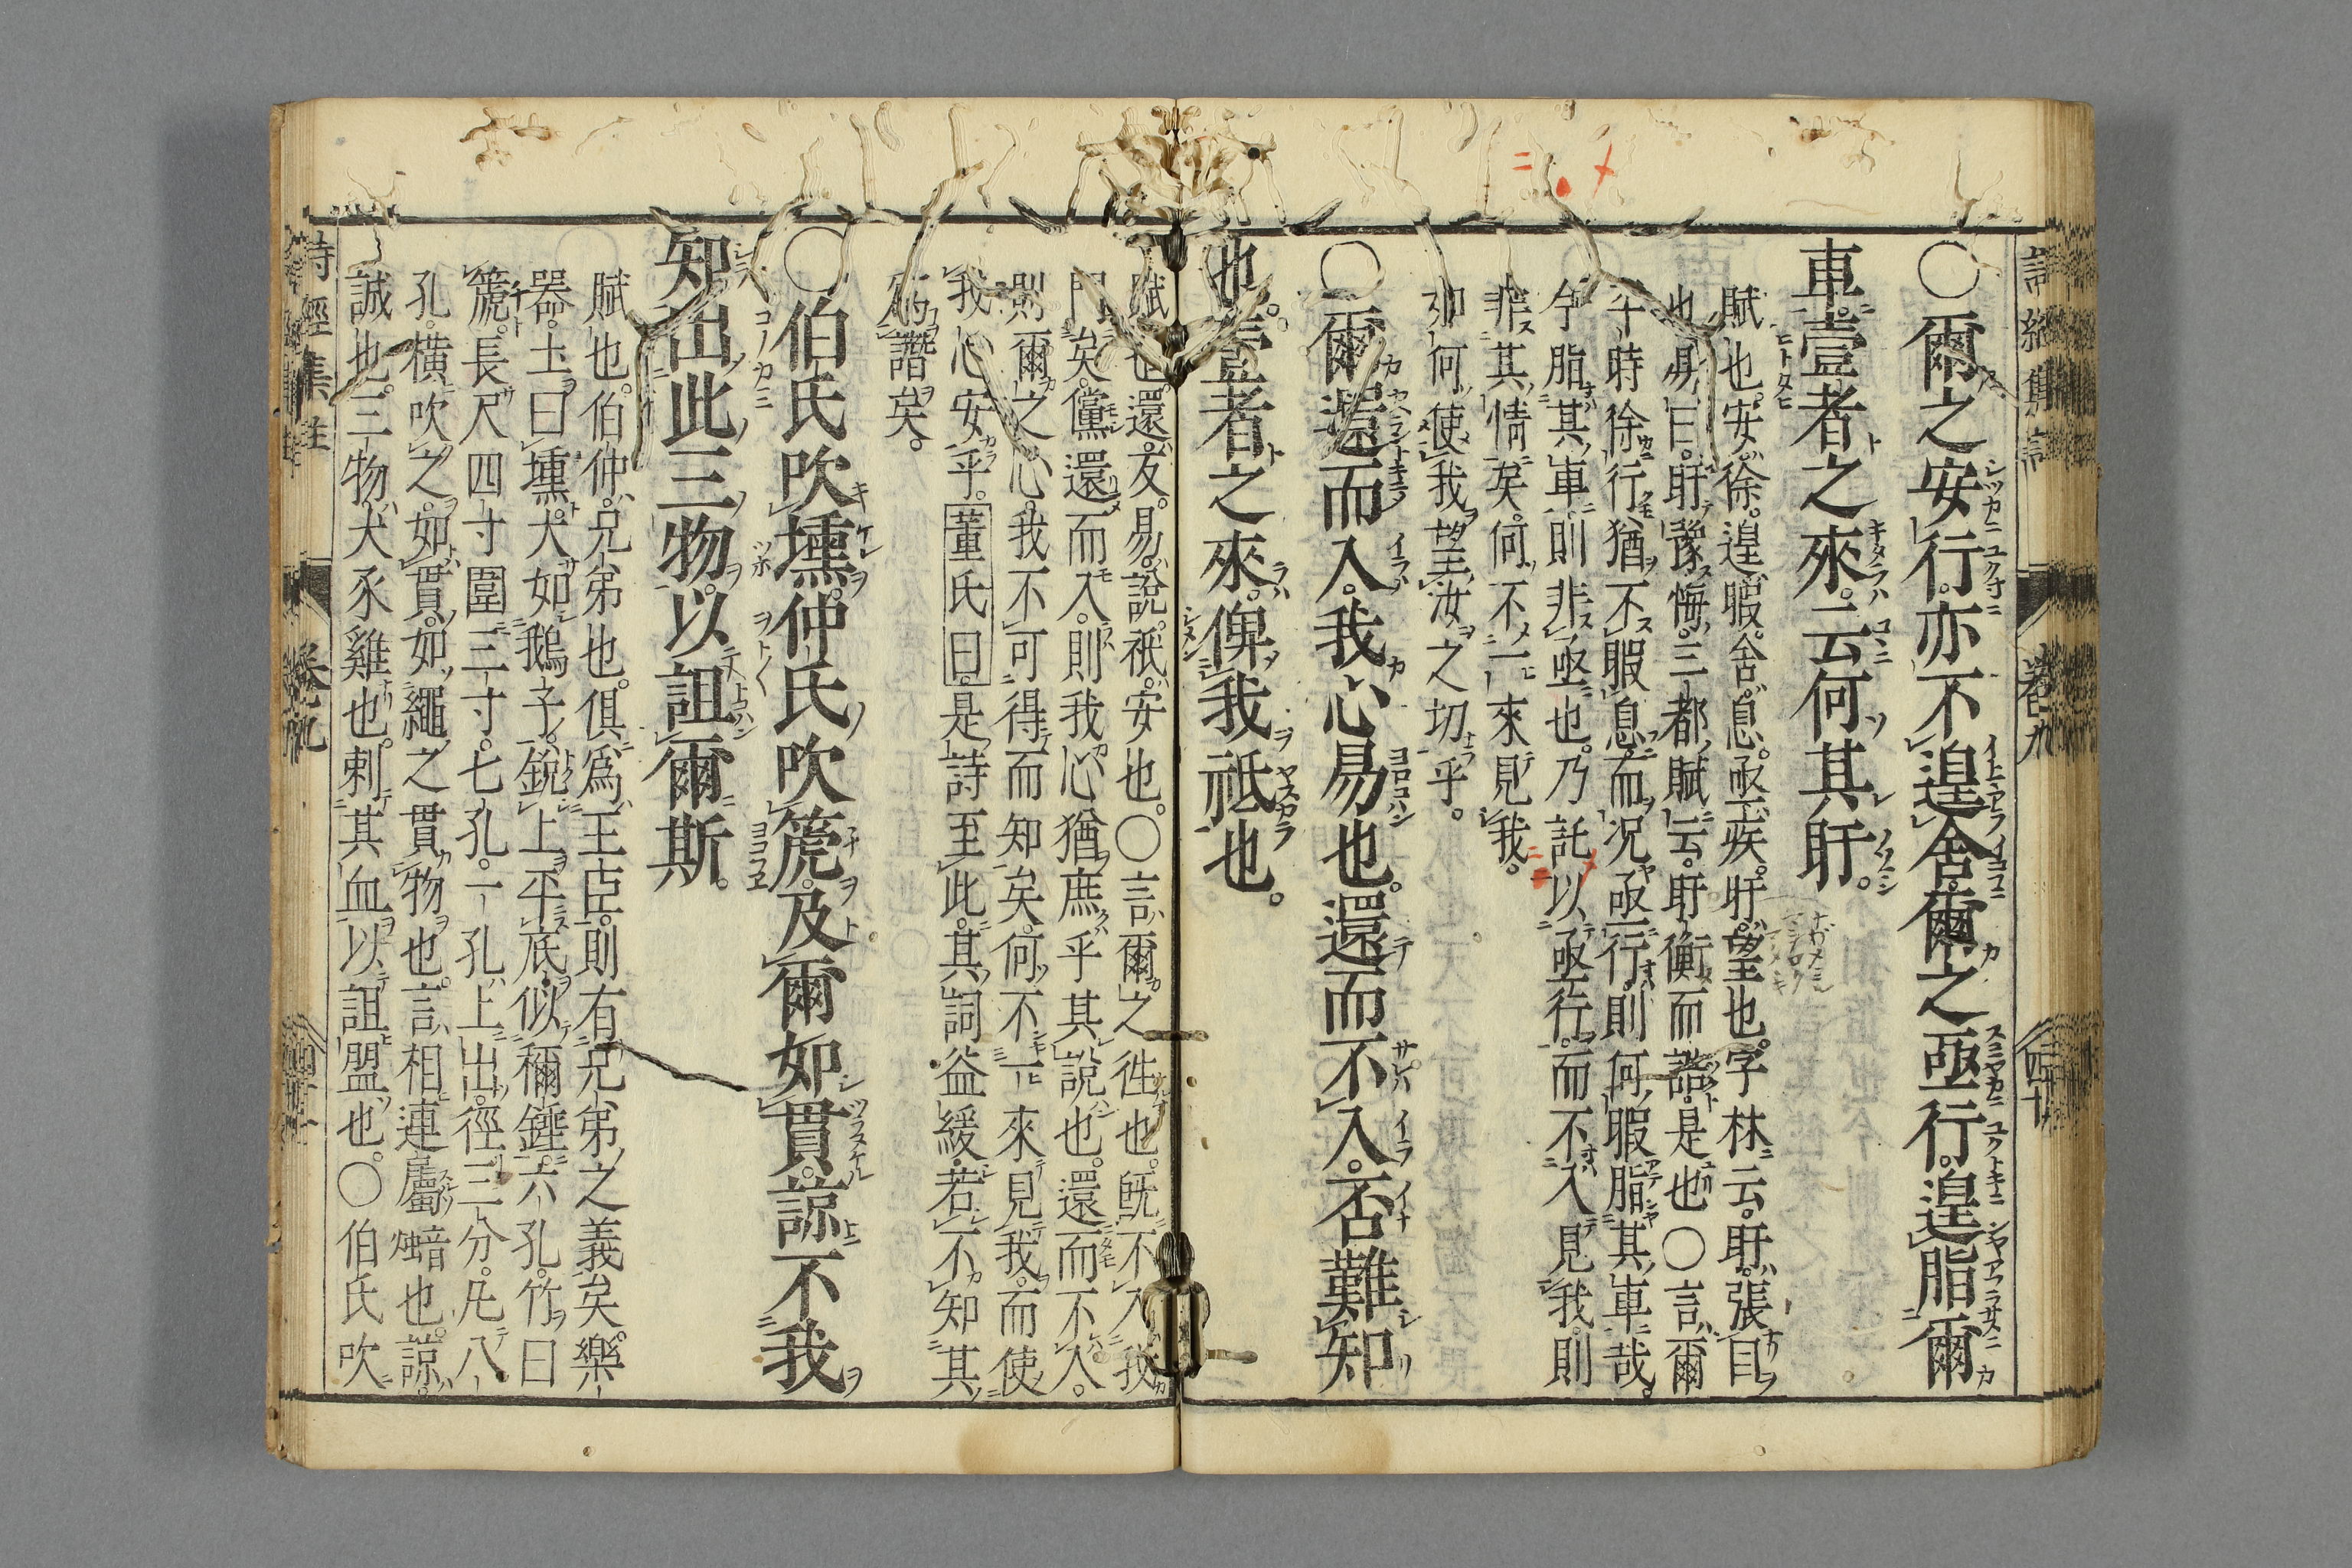 ○爾之安行。亦不遑舍。爾之亟行。遑脂爾
車。壹者之來。云何其盱。
賦也。安。徐。遑。暇。舍。息。亟。疾。盱。望也。字林云。盱。張目
也。易曰。盱豫悔。三都賦云。盱衡而誥。是也。○言爾
平時徐行。猶不暇息。而况亟行。則何暇脂其車哉。
今脂其車。則非亟也。乃託以亟行。而不入見我。則
非其情矣。何不一來見我。
如何使我望汝之切乎。
○爾還而入。我心易也。還而不入。否難知
也。壹者之來。俾我祇也。
賦也。還。反。易。說。祇。安也。○言爾之徃也。旣不入我
門矣。儻還而入。則我心猶庶乎其說也。還而不入。
則爾之心。我不可得而知矣。何不一來見我。而使
我心安乎。董氏曰。是詩至此。其詞益緩。若不知其
爲譖矣。
○伯氏吹壎。仲氏吹篪。及爾如貫。諒不我
知。出此三物。以詛爾斯。
賦也。伯仲。兄弟也。俱爲王臣。則有兄弟之義矣。樂
器。土曰壎。大如鵝子。銳上平底。似稱錘。六孔。竹曰
篪。長尺四寸。圍三寸。七孔。一孔上出。徑三分。凡八
孔。横吹之。如貫。如繩之貫物也。言相連屬也。諒。
誠也。三物。犬豕雞也。刺其血以詛盟也。○伯氏吹
詩經集註
卷九
四十